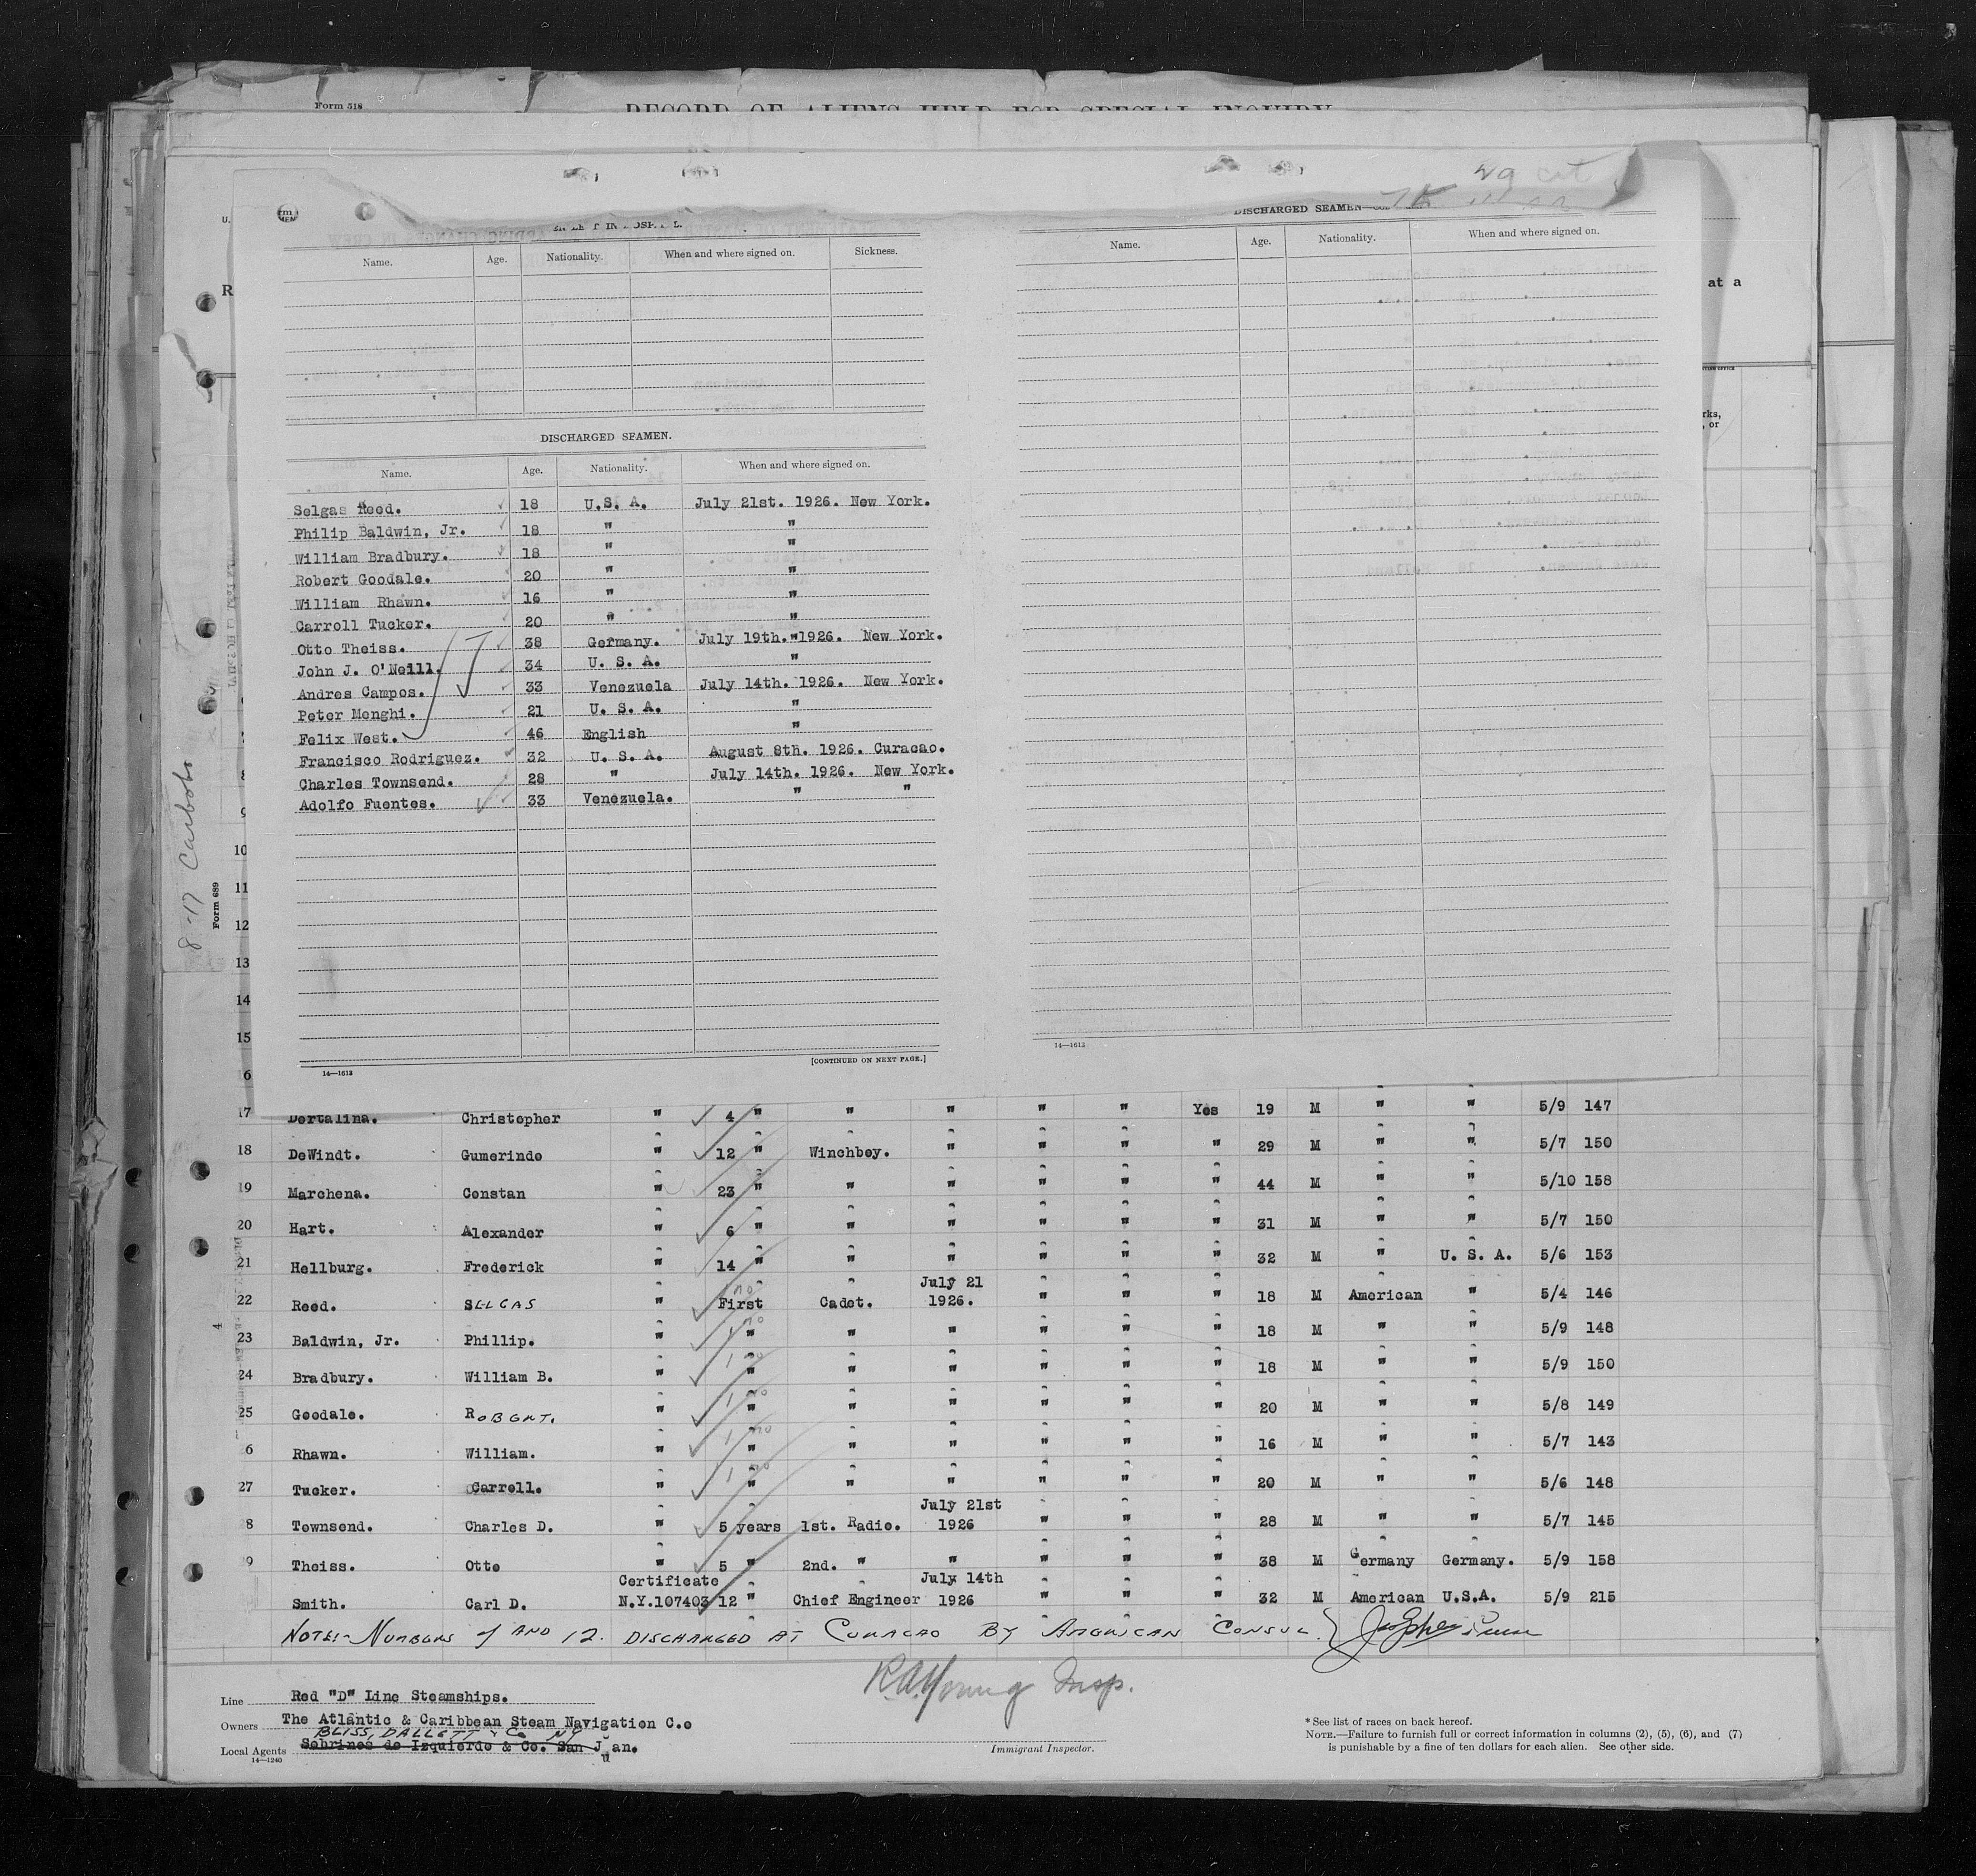 Form 518
RECORD OF ALIENS HELD FOR SPECIAL INQUIRY
29 cat
U.
R
at a
rks,
, or
Name. Age. Nationality. When and where signed on. Sickness.
DISCHARGED SEAMEN.
Name. Age. Nationality. When and where signed on.
Selgas Reed. 18 U.S. A. July 21st. 1926. New York.
Philip Baldwin, Jr. 18 " "
William Bradbury. 18 " "
Robert Goodale. 20 " "
William Rhawn. 16 " "
Carroll Tucker. 20 " "
Otto Theiss. 38 Germany. July 19th. 1926. New York.
John J. O'Neill. 34 U. S. A. "
Andres Campos. 33 Venezuela July 14th. 1926. New York.
Peter Menghi. 21 U. S. A. "
Felix West. 46 English "
Francisco Rodriguez. 32 U. S. A. August 8th. 1926. Curacao.
Charles Townsend. 28 " July 14th. 1926. New York.
Adolfo Fuentes. 33 Venezuela. " "
[CONTINUED ON NEXT PAGE.]
14—1613
DISCHARGED SEAMEN
Name. Age. Nationality. When and where signed on.
14—1613
8-17 Carbobo
Form 689
8
9
10
11
12
13
14
15
6
17 Dortalina. Christopher " 4 " " " " " Yes 19 M " " 5/9 147
18 DeWindt. Gumerindo " 12 " Winchboy. " " " " 29 M " " 5/7 150
19 Marchena. Constan " 23 " " " " " " 44 M " " 5/10 158
20 Hart. Alexander " 6 " " " " " " 31 M " " 5/7 150
21 Hellburg. Frederick " 14 " " " " " " 32 M " U. S. A. 5/6 153
22 Reed. SELGAS " First Cadet. July 21 1926. " " " 18 M American " 5/4 146
23 Baldwin, Jr. Phillip. " " " " " " " 18 M " " 5/9 148
24 Bradbury. William B. " " " " " " " 18 M " " 5/9 150
25 Goodale. ROBERT. " " " " " " " 20 M " " 5/8 149
6 Rhawn. William. " " " " " " " 16 M " " 5/7 143
27 Tucker. Carroll. " " " " " " " 20 M " " 5/6 148
8 Townsend. Charles D. " 5 years 1st. Radio. July 21st 1926 " " " 28 M " " 5/7 145
9 Theiss. Otto " 5 " 2nd. " " " " " 38 M Germany Germany. 5/9 158
Smith. Carl D. Certificate N.Y.107403 12 " Chief Engineer July 14th 1926 " " " 32 M American U.S.A. 5/9 215
NOTE:- NUMBERS 7 AND 12. DISCHARGED AT CURACAO BY AMERICAN CONSUL.
R.A. Young Insp.
Line Red "D" Line Steamships.
Owners The Atlantic & Caribbean Steam Navigation C.o
BLISS, DALLETT & Co NY
Local Agents Sobrinos de Izquierdo & Co. San Juan.
14—1240
Immigrant Inspector.
* See list of races on back hereof.
NOTE.—Failure to furnish full or correct information in columns (2), (5), (6), and (7)
is punishable by a fine of ten dollars for each alien. See other side.